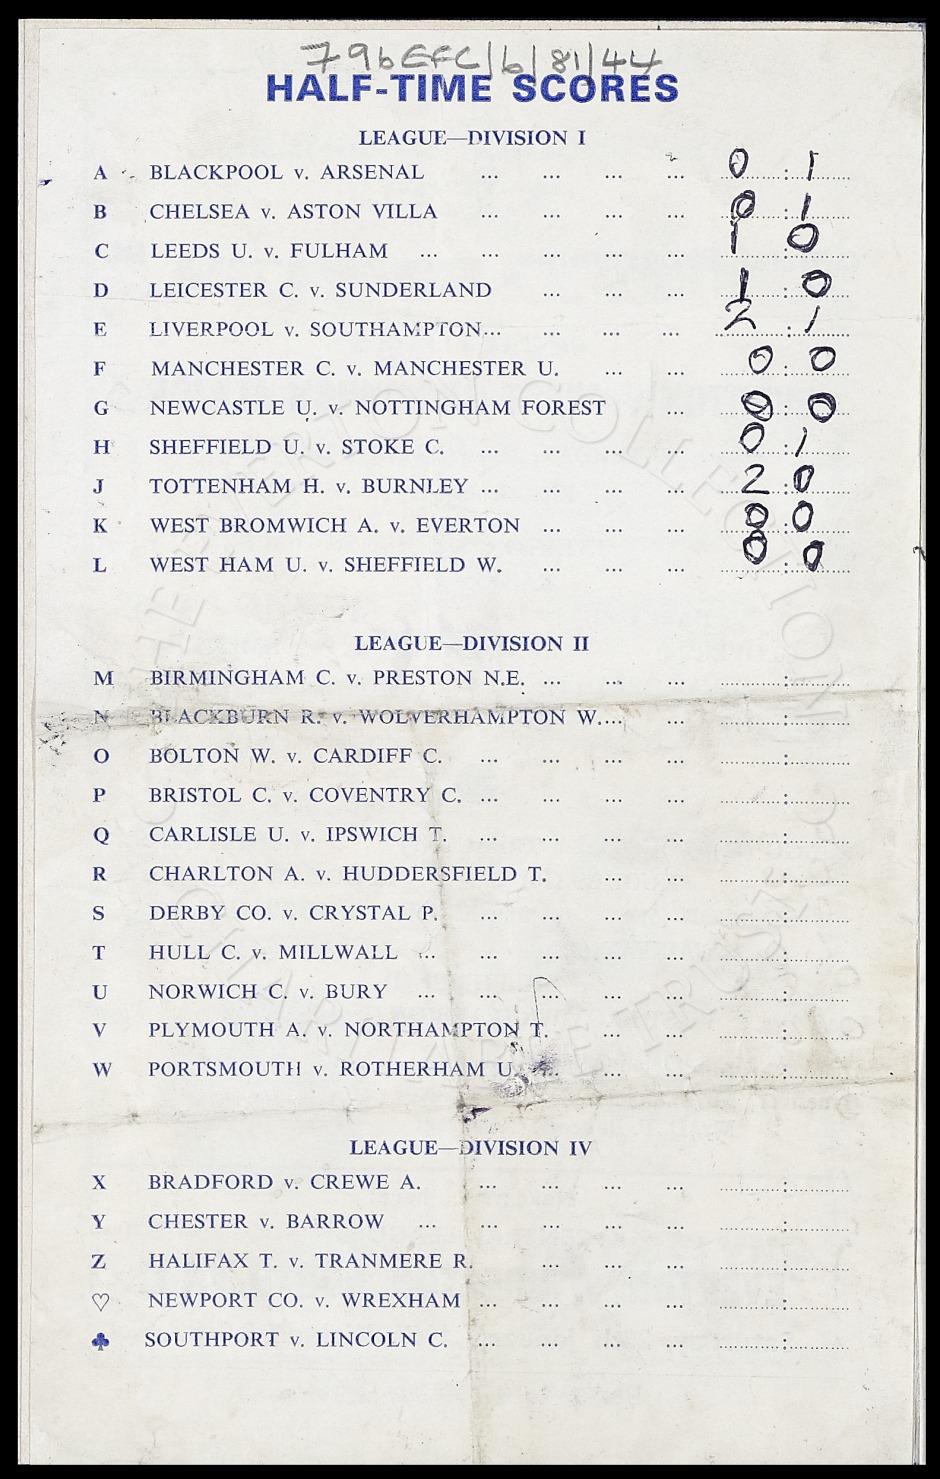 796 EFC/6/81/44
HALF-TIME SCORES
LEAGUE—DIVISION I
A BLACKPOOL v. ARSENAL ... ... ... ... 0 : 1
B CHELSEA v. ASTON VILLA ... ... ... ... 0 : 1
C LEEDS U. v. FULHAM ... ... ... ... ... 1 : 0
D LEICESTER C. v. SUNDERLAND ... ... ... 1 : 0
E LIVERPOOL v. SOUTHAMPTON... ... ... ... 2 : 1
F MANCHESTER C. v. MANCHESTER U. ... ... 0 : 0
G NEWCASTLE U. v. NOTTINGHAM FOREST ... 0 : 0
H SHEFFIELD U. v. STOKE C. ... ... ... ... 0 : 1
J TOTTENHAM H. v. BURNLEY ... ... ... ... 2 : 0
K WEST BROMWICH A. v. EVERTON ... ... ... 0 : 0
L WEST HAM U. v. SHEFFIELD W. ... ... ... 0 : 0
LEAGUE—DIVISION II
M BIRMINGHAM C. v. PRESTON N.E. ... ... ... :
N BLACKBURN R. v. WOLVERHAMPTON W.... ... :
O BOLTON W. v. CARDIFF C. ... ... ... ... :
P BRISTOL C. v. COVENTRY C. ... ... ... ... :
Q CARLISLE U. v. IPSWICH T. ... ... ... ... :
R CHARLTON A. v. HUDDERSFIELD T. ... ... :
S DERBY CO. v. CRYSTAL P. ... ... ... ... :
T HULL C. v. MILLWALL ... ... ... ... ... :
U NORWICH C. v. BURY ... ... ... ... ... :
V PLYMOUTH A. v. NORTHAMPTON T. ... ... :
W PORTSMOUTH v. ROTHERHAM U. ... ... ... :
LEAGUE—DIVISION IV
X BRADFORD v. CREWE A. ... ... ... ... :
Y CHESTER v. BARROW ... ... ... ... ... :
Z HALIFAX T. v. TRANMERE R. ... ... ... :
♡ NEWPORT CO. v. WREXHAM ... ... ... ... :
♣ SOUTHPORT v. LINCOLN C. ... ... ... ... :
THE EVERTON COLLECTION
CHARITABLE TRUST